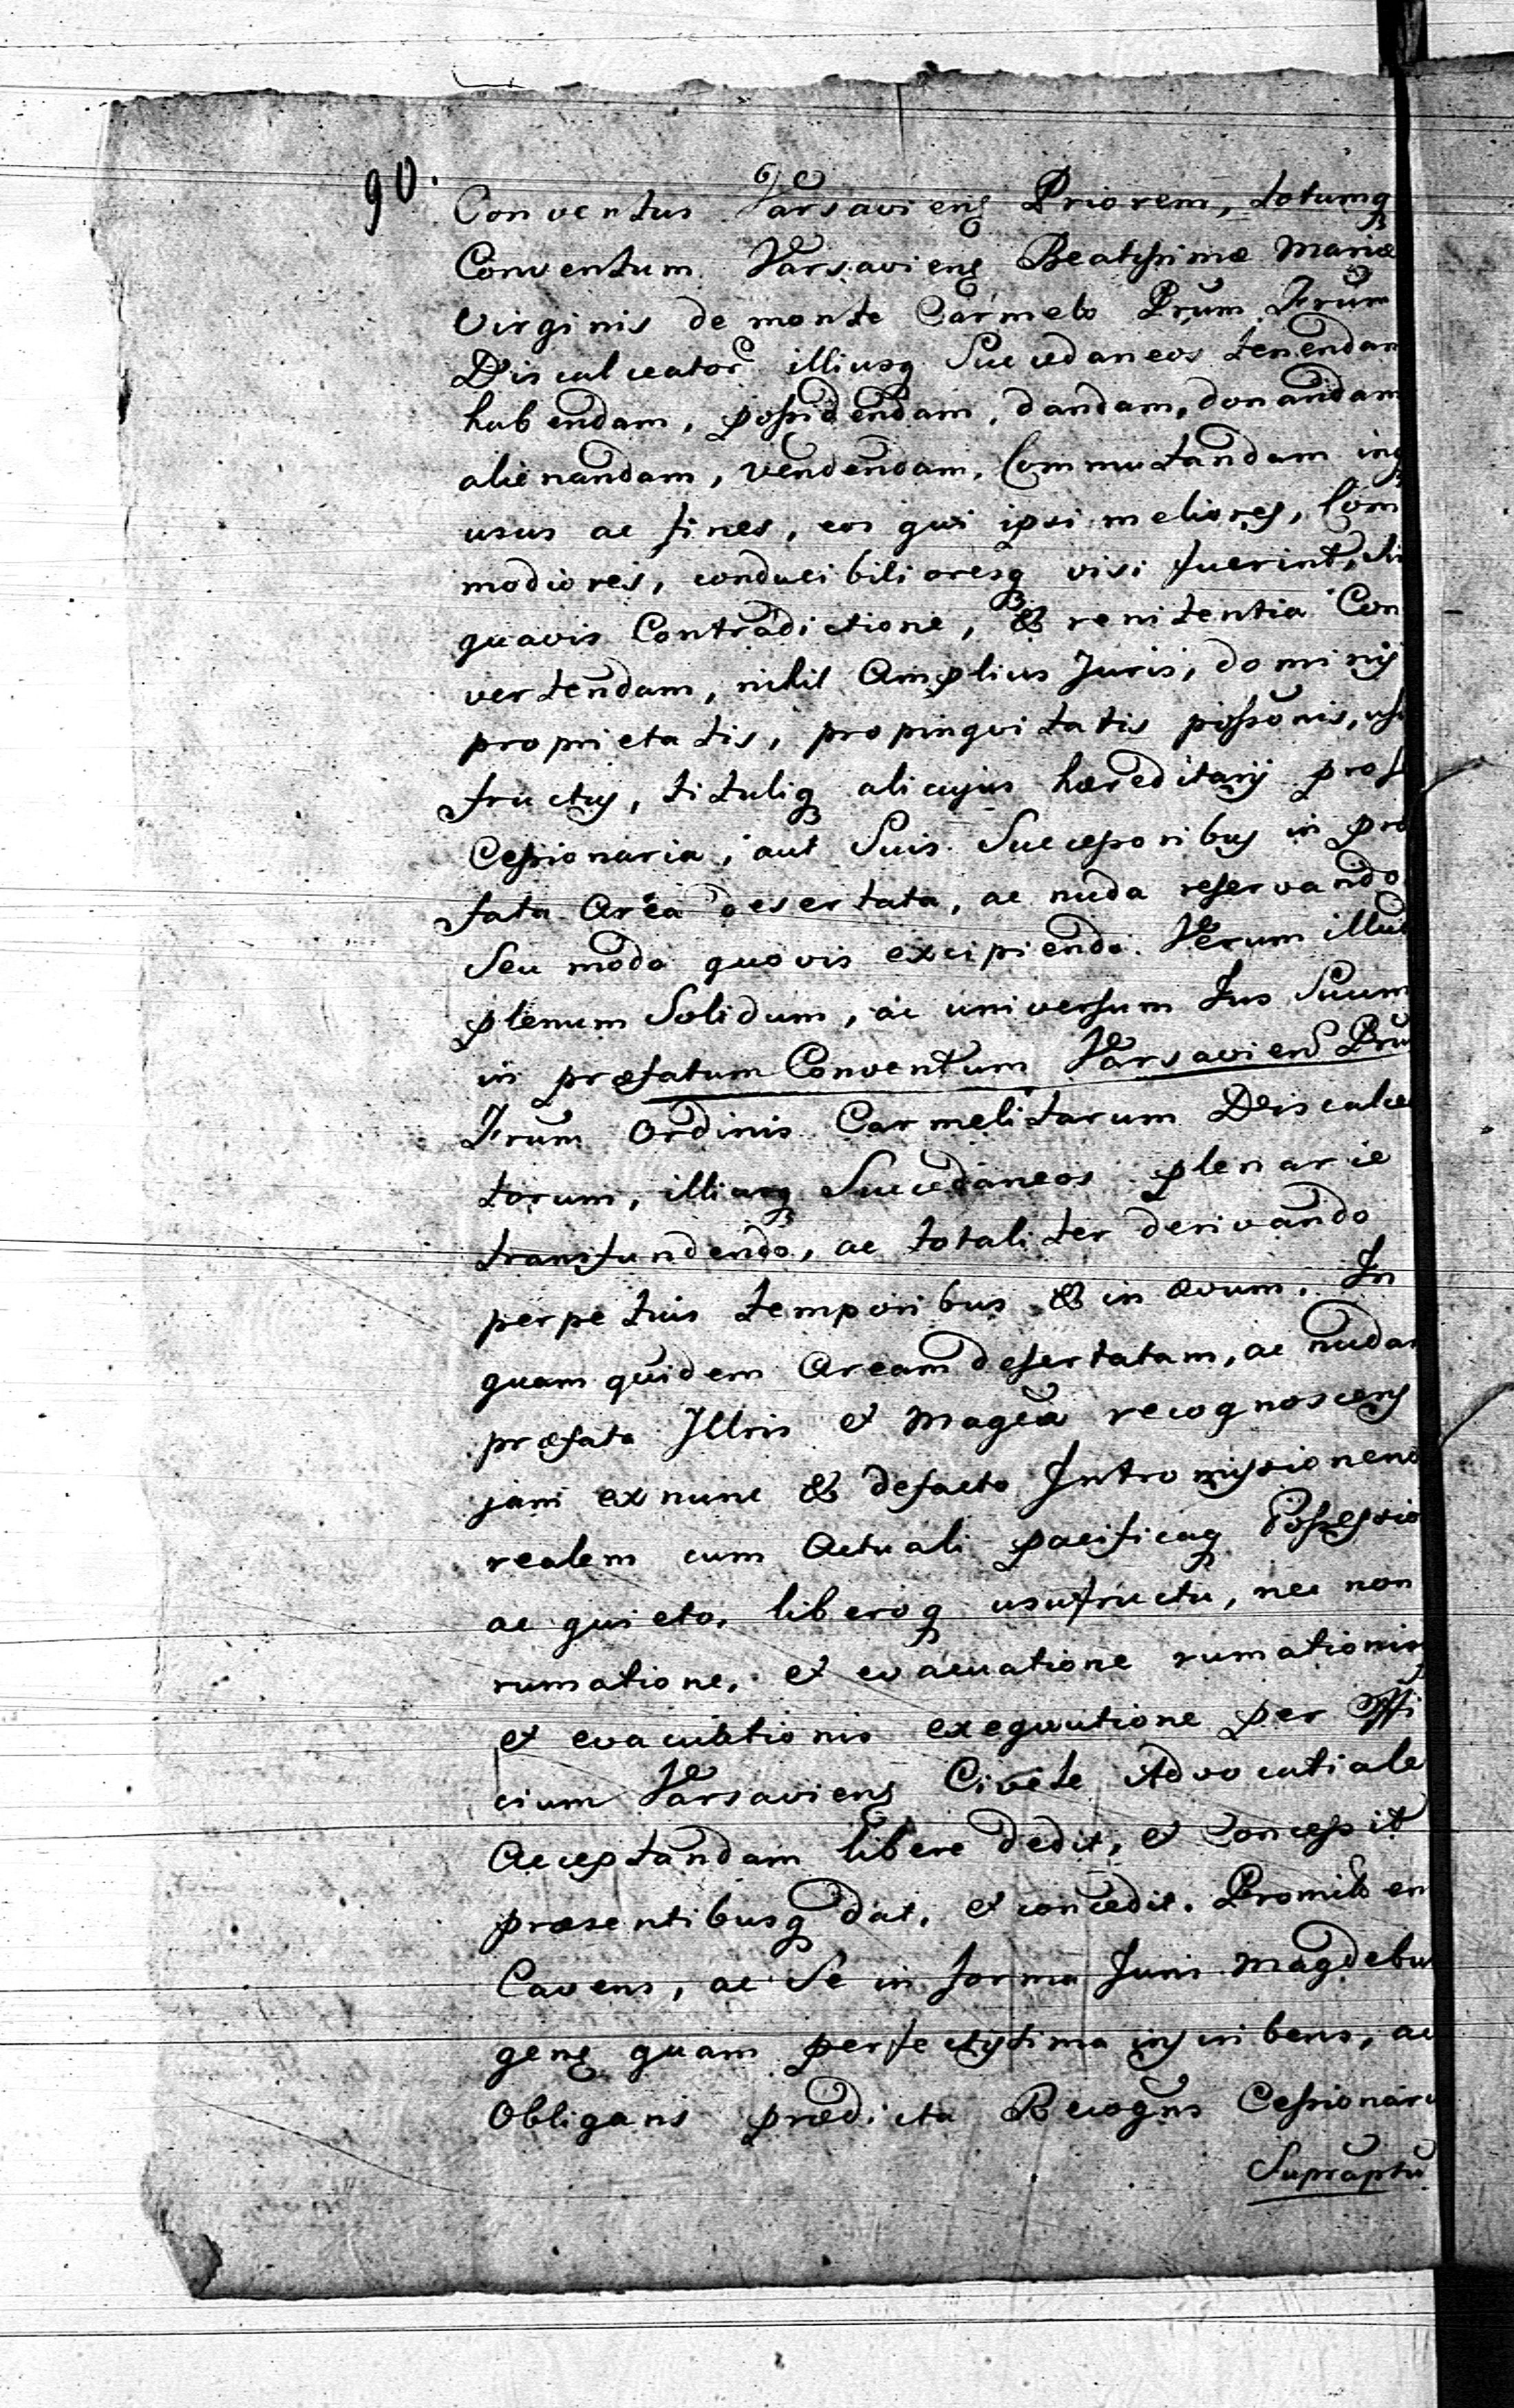 90.
Conventus Varsaviens Priorem, totumq
Conventum Varsaviens Beatissimæ Mariæ
Virginis de monte Carmelo Prum Frum
Discalceator illiusq Succedaneos tenendam
habendam, possidendam, dandam, donandam
alienandam, vendendam, Commutandam inq
usus ac fines, eos qui ipsi meliores, Com
modiores, conducibilioresq visi fuerint, si
quavis Contradictione, & renitentia Con
vertendam, nihil Amplius Juris, dominij
proprietatis, propinquitatis possonis, usu
fructus, tituliq alicujus hæreditarij præf
Cessionaria, aut Suis Successoribus in præ
fata Area desertata, ac nuda reservando
Seu modo quovis excipiendo. Verum illud
plenum Solidum, ac universum Jus Suum
in præfatum Conventum Varsaviens Pru
Frum Ordinis Carmelitarum Discalcea
torum, illiusq Succedaneos plenarie
transfundendo, ac totaliter derivando
perpetuis temporibus & in ævum. In
quam quidem Aream desertatam, ac nudam
præfata Illris et Magca recognoscens
jam ex nunc & defacto Intromissionem
realem cum Actuali pacificaq Possessio
ac quieto, liberoq usufructu, nec non
rumatione, et evacuatione rumationis
et evacuationis exequutione per Offi
cium Varsaviens Civile Advocatiale
Acceptandam libere dedit, et concessit
præsentibusq dat, et concedit. Promitt en
Cavens, ac Se in forma Juris Magdebur
gens quam perfectissima inscribens, ac
Obligans prædicta Recogns Cessionari
Supraptu